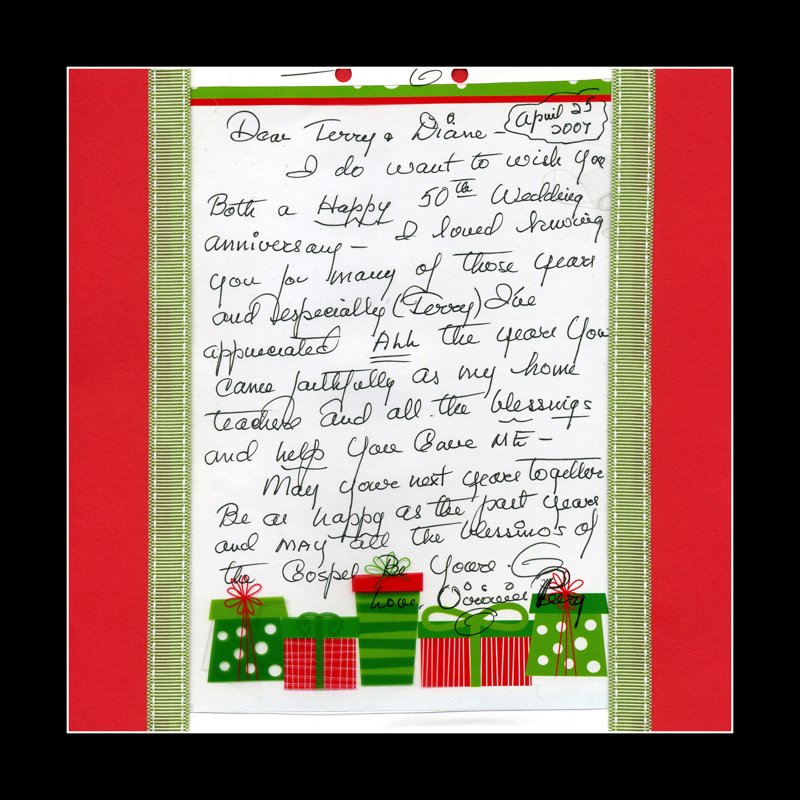 April 25
2007
Dear Terry & Diane —
I do want to wish you
Both a Happy 50th Wedding
anniversary — I loved knowing
you for many of those years
and especially (Terry) I've
appreciated All the years You
came faithfully as my home
teacher and all the blessings
and help You Gave ME —
May your next years together
Be as happy as the past years
and MAY all the blessings of
the Gospel Be Yours.
Love,